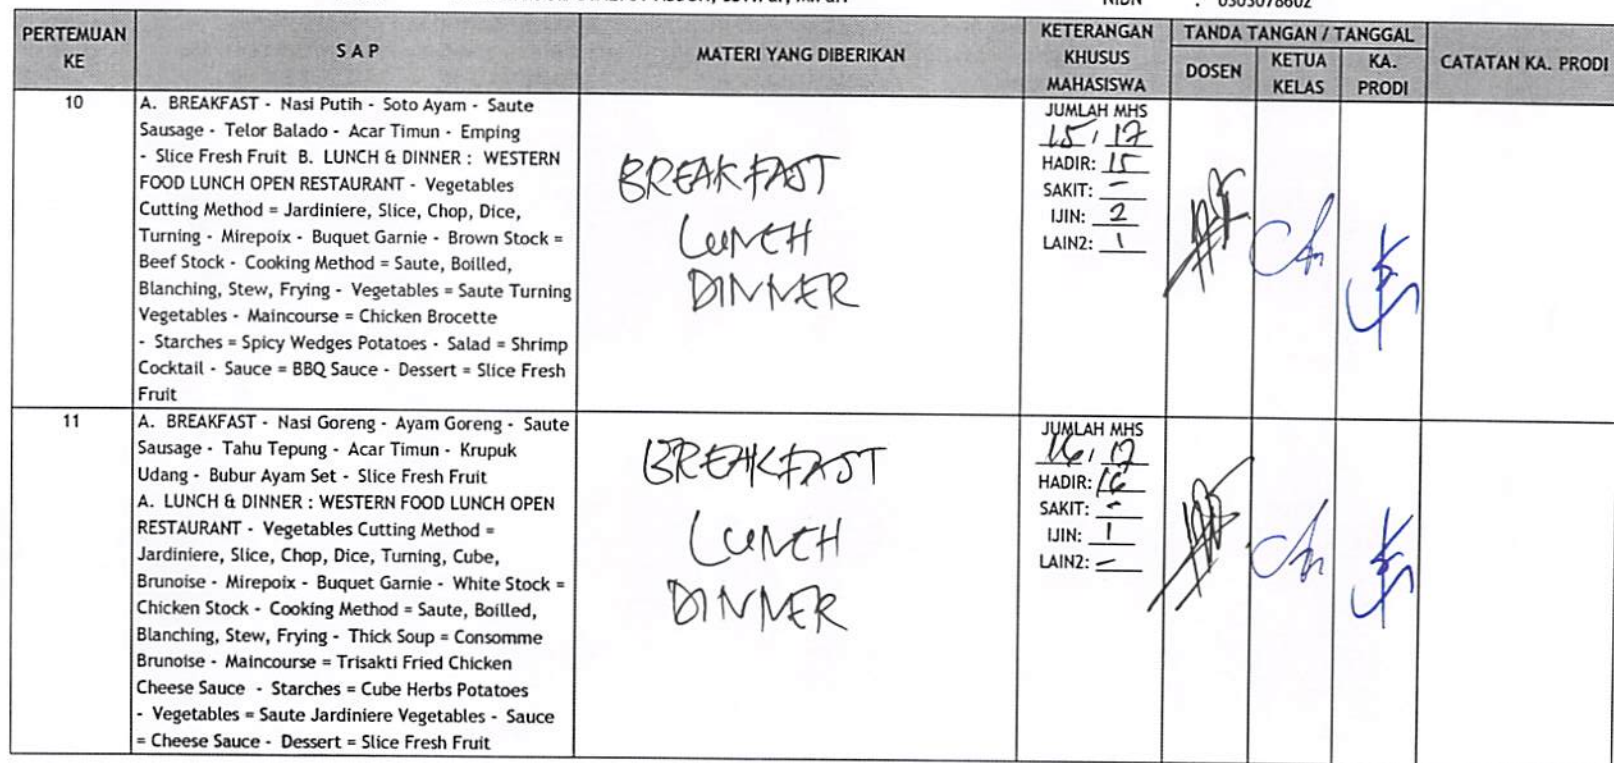 NIDN : 0303078602
PERTEMUAN KE
S A P
MATERI YANG DIBERIKAN
KETERANGAN KHUSUS MAHASISWA
TANDA TANGAN / TANGGAL
DOSEN
KETUA KELAS
KA. PRODI
CATATAN KA. PRODI
10
A. BREAKFAST - Nasi Putih - Soto Ayam - Saute
Sausage - Telor Balado - Acar Timun - Emping
- Slice Fresh Fruit B. LUNCH & DINNER : WESTERN
FOOD LUNCH OPEN RESTAURANT - Vegetables
Cutting Method = Jardiniere, Slice, Chop, Dice,
Turning - Mirepoix - Buquet Garnie - Brown Stock =
Beef Stock - Cooking Method = Saute, Boilled,
Blanching, Stew, Frying - Vegetables = Saute Turning
Vegetables - Maincourse = Chicken Brocette
- Starches = Spicy Wedges Potatoes - Salad = Shrimp
Cocktail - Sauce = BBQ Sauce - Dessert = Slice Fresh
Fruit
BREAKFAST
LUNCH
DINNER
JUMLAH MHS
15 / 17
HADIR: 15
SAKIT: -
IJIN: 2
LAIN2: 1
11
A. BREAKFAST - Nasi Goreng - Ayam Goreng - Saute
Sausage - Tahu Tepung - Acar Timun - Krupuk
Udang - Bubur Ayam Set - Slice Fresh Fruit
A. LUNCH & DINNER : WESTERN FOOD LUNCH OPEN
RESTAURANT - Vegetables Cutting Method =
Jardiniere, Slice, Chop, Dice, Turning, Cube,
Brunoise - Mirepoix - Buquet Garnie - White Stock =
Chicken Stock - Cooking Method = Saute, Boilled,
Blanching, Stew, Frying - Thick Soup = Consomme
Brunoise - Maincourse = Trisakti Fried Chicken
Cheese Sauce - Starches = Cube Herbs Potatoes
- Vegetables = Saute Jardiniere Vegetables - Sauce
= Cheese Sauce - Dessert = Slice Fresh Fruit
BREAKFAST
LUNCH
DINNER
JUMLAH MHS
16 / 17
HADIR: 16
SAKIT: -
IJIN: 1
LAIN2: -